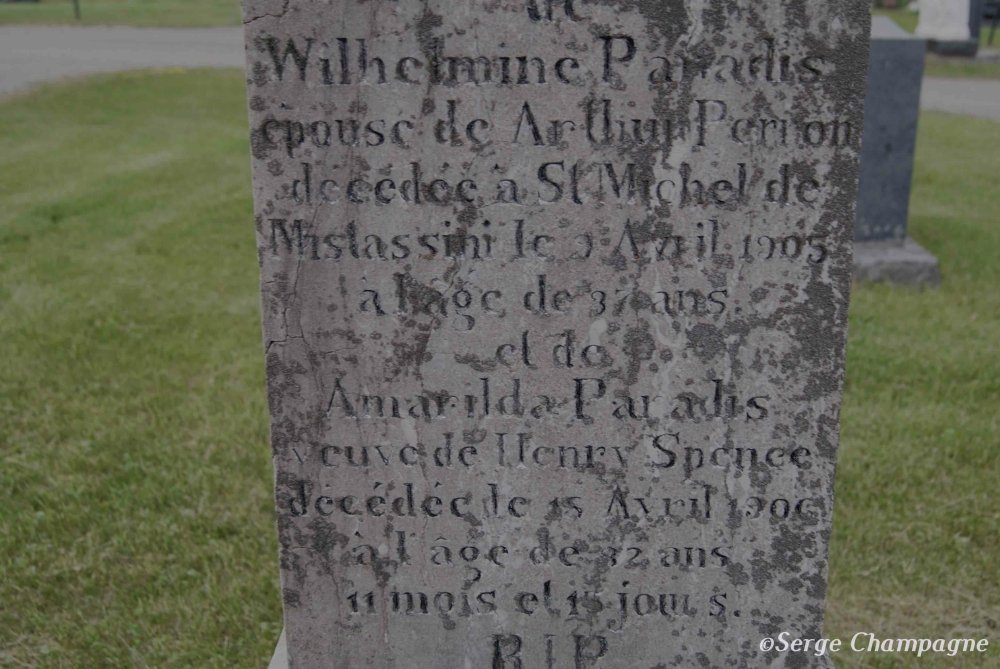 de
Wilhelmine Paradis
épouse de Arthur Perron
décédée à St Michel de
Mistassini le 9 Avril 1905
à l'âge de 37 ans.
et de
Amarilda Paradis
veuve de Henry Spence
décédée de 15 Avril 1906
à l'âge de 32 ans
11 mois et 15 jours.
R I P
©Serge Champagne